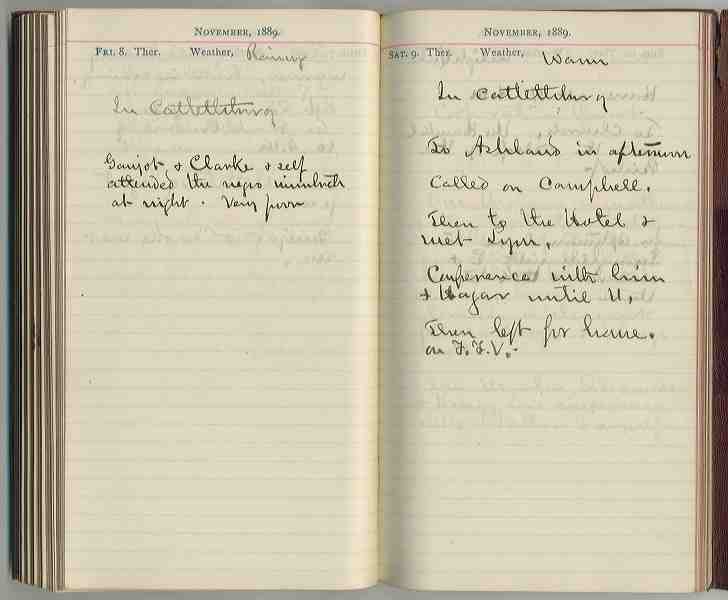 NOVEMBER, 1889.
FRI. 8. Ther. Weather, Rainy
In Catlettsburg
Gaujot & Clarke & self
attended the negro minstrels
at night. Very poor
NOVEMBER, 1889.
SAT. 9. Ther. Weather, Warm
In Catlettsburg
To Ashland in afternoon
Called on Campbell.
Then to the Hotel &
met
Conference with him
& Hagar until 11,
Then left for home.
on F.F.V.